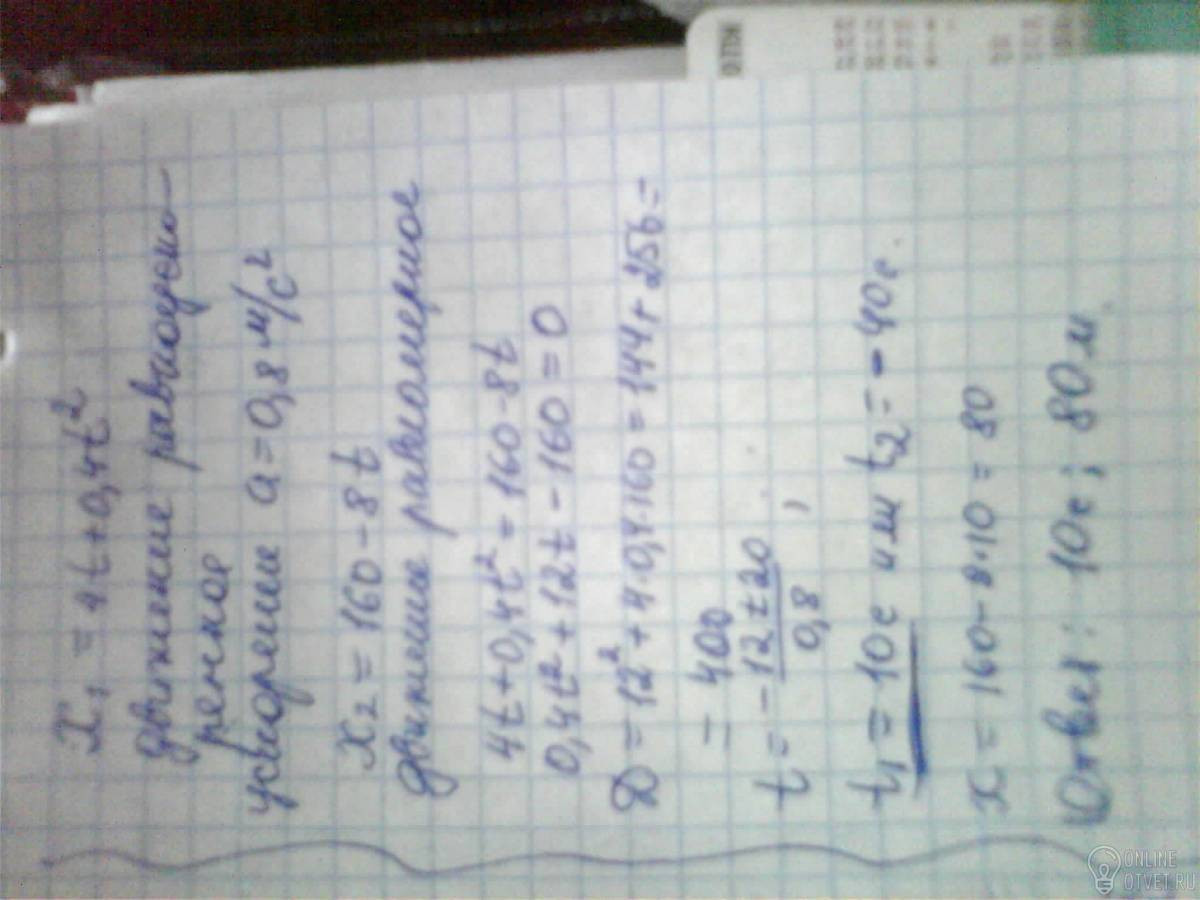 x₁ = 4t+0,4t²
движение равноуско-
ренное
ускорение a=0,8 м/с²
x₂ = 160-8t
движение равномерное
4t+0,4t² = 160-8t
0,4t²+12t-160=0
D=12²+4·0,4·160=144+256=
= 400
t = -12±20
0,8 ,
t₁ = 10с или t₂ = -40с.
x = 160-8·10 = 80
Ответ: 10с; 80м.
ONLINE
OTVET.RU